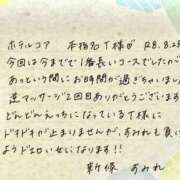 ホテルコア 本指名T様 R8.8.25
今回は今までで1番長いコースでしたが
あっという間にお時間が過ぎちゃいまし
逆マッサージ2回目ありがとうございます
どんどんえっちになっているT様に
ドキドキが止まりませんが、すみれも負けな
ようドエロい女になります!!
新條 すみれ